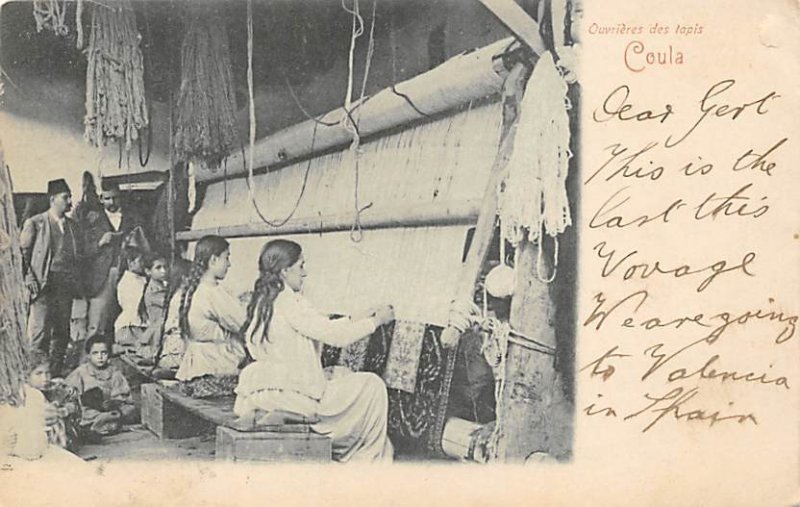 Ouvrières des tapis
Coula
Dear Gert
This is the
last this
Voyage
We are going
to Valencia
in Spain